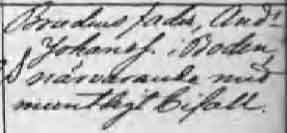 Brudens fader, And:
Johaness. i Boden,
närvarande med
muntligt bifall.